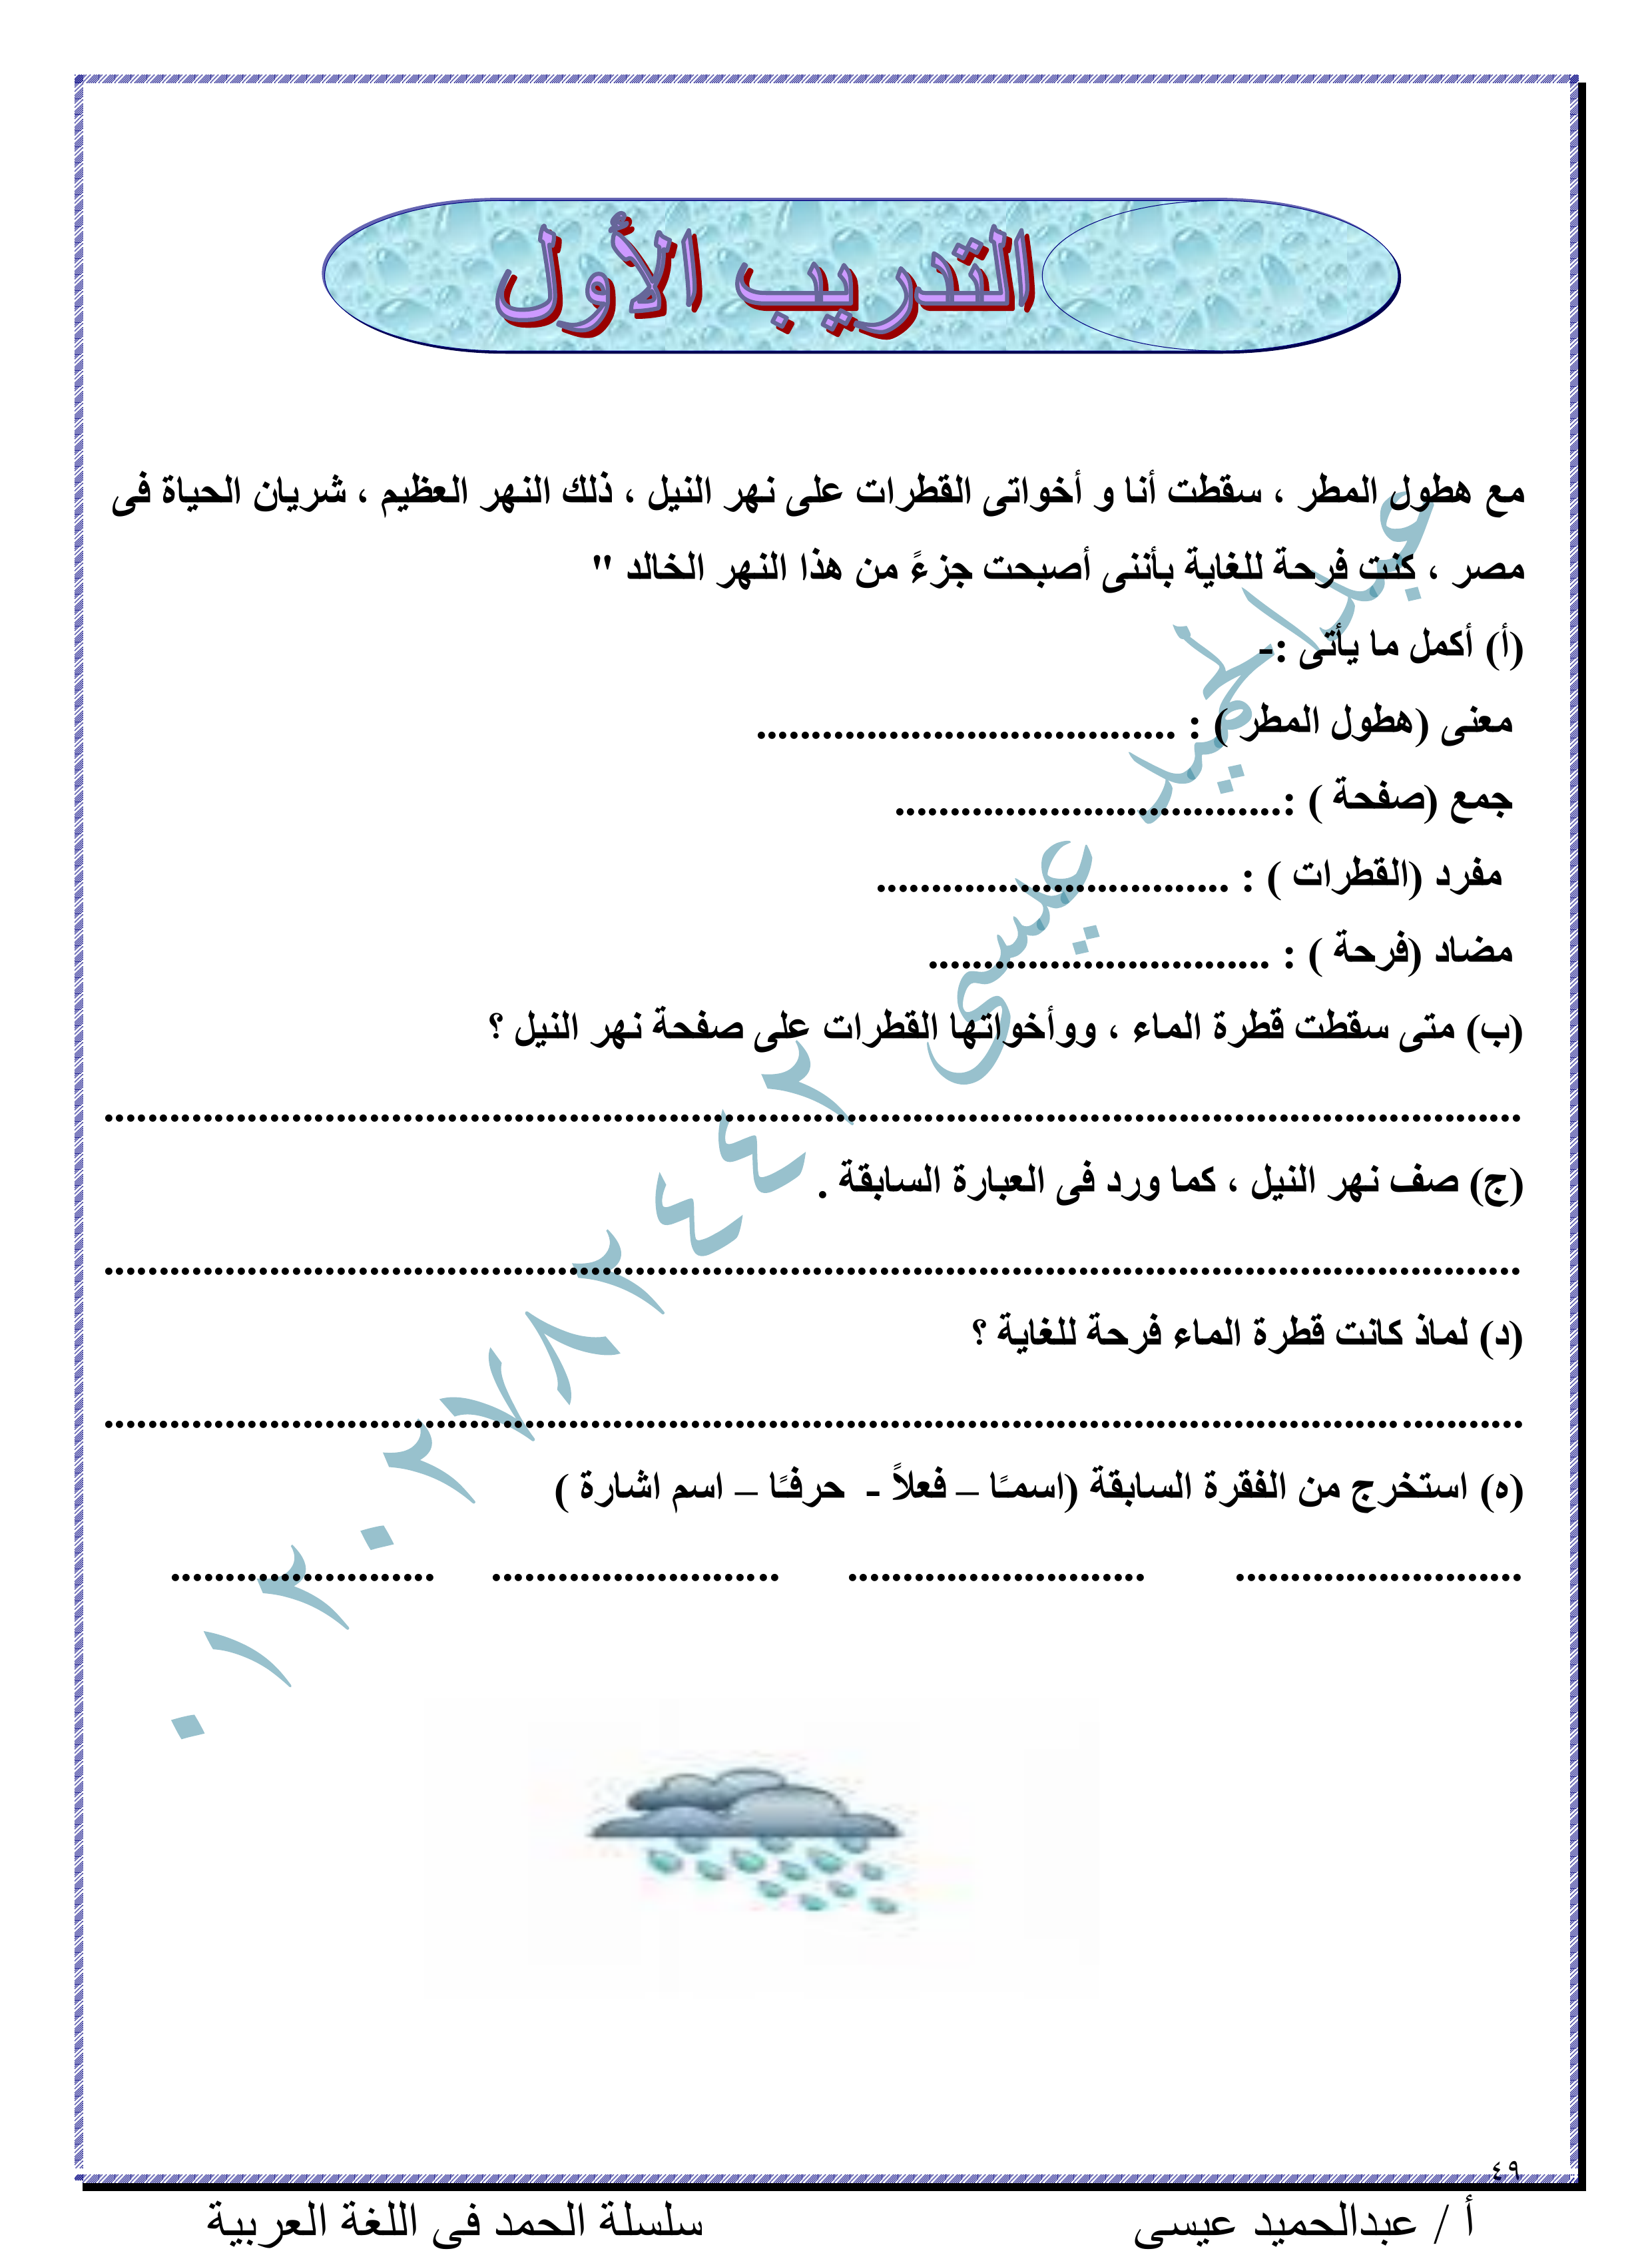 التدريب الأول
مع هطول المطر ، سقطت أنا و أخواتى القطرات على نهر النيل ، ذلك النهر العظيم ، شريان الحياة فى
مصر ، كنت فرحة للغاية بأننى أصبحت جزءً من هذا النهر الخالد "
(أ) أكمل ما يأتى :-
معنى (هطول المطر ) : ......................................
جمع (صفحة ) :...................................
مفرد (القطرات ) : ................................
مضاد (فرحة ) : ...............................
(ب) متى سقطت قطرة الماء ، ووأخواتها القطرات على صفحة نهر النيل ؟
................................................................................................................................
(ج) صف نهر النيل ، كما ورد فى العبارة السابقة .
................................................................................................................................
(د) لماذ كانت قطرة الماء فرحة للغاية ؟
................................................................................................................................
(ه) استخرج من الفقرة السابقة (اسمـًا – فعلاً - حرفـًا – اسم اشارة )
.......................... ........................... .......................... ........................
عبدالحميد عيسى ٠١٢٠٢٧٨٢٤٤٢
٤٩
أ / عبدالحميد عيسى سلسلة الحمد فى اللغة العربية